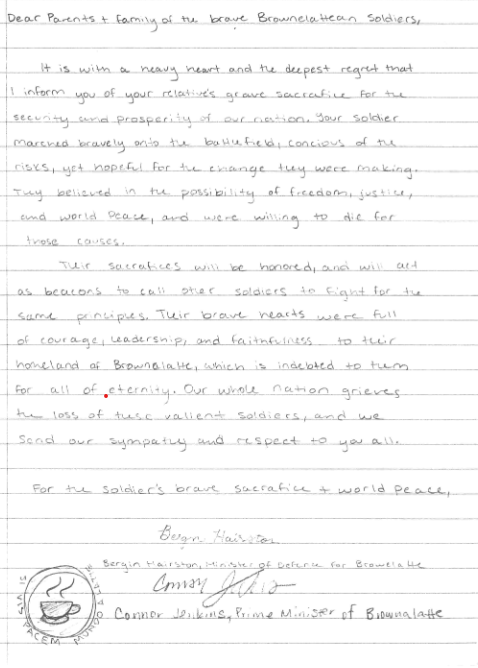 Dear Parents + family of the brave Brownelattean Soldiers,
It is with a heavy heart and the deepest regret that
I inform you of your relative's grave sacrafice for the
security and prosperity of our nation. Your soldier
marched bravely onto the battlefield, concious of the
risks, yet hopeful for the change they were making.
They believed in the possibility of freedom, justice,
and world peace, and were willing to die for
those causes.
Their sacrafices will be honored, and will act
as beacons to call other soldiers to fight for the
same principles. Their brave hearts were full
of courage, leadership, and faithfulness to their
homeland of Brownalatte, which is indebted to them
for all of eternity. Our whole nation grieves
the loss of these valient soldiers, and we
send our sympathy and respect to you all.
For the soldier's brave sacrafice + world peace,
Bergin Hairston
Bergin Hairston, Minister of Defence for Browelatte
Connor
Connor Jenkins, Prime Minister of Brownalatte
PACEM MUNDO